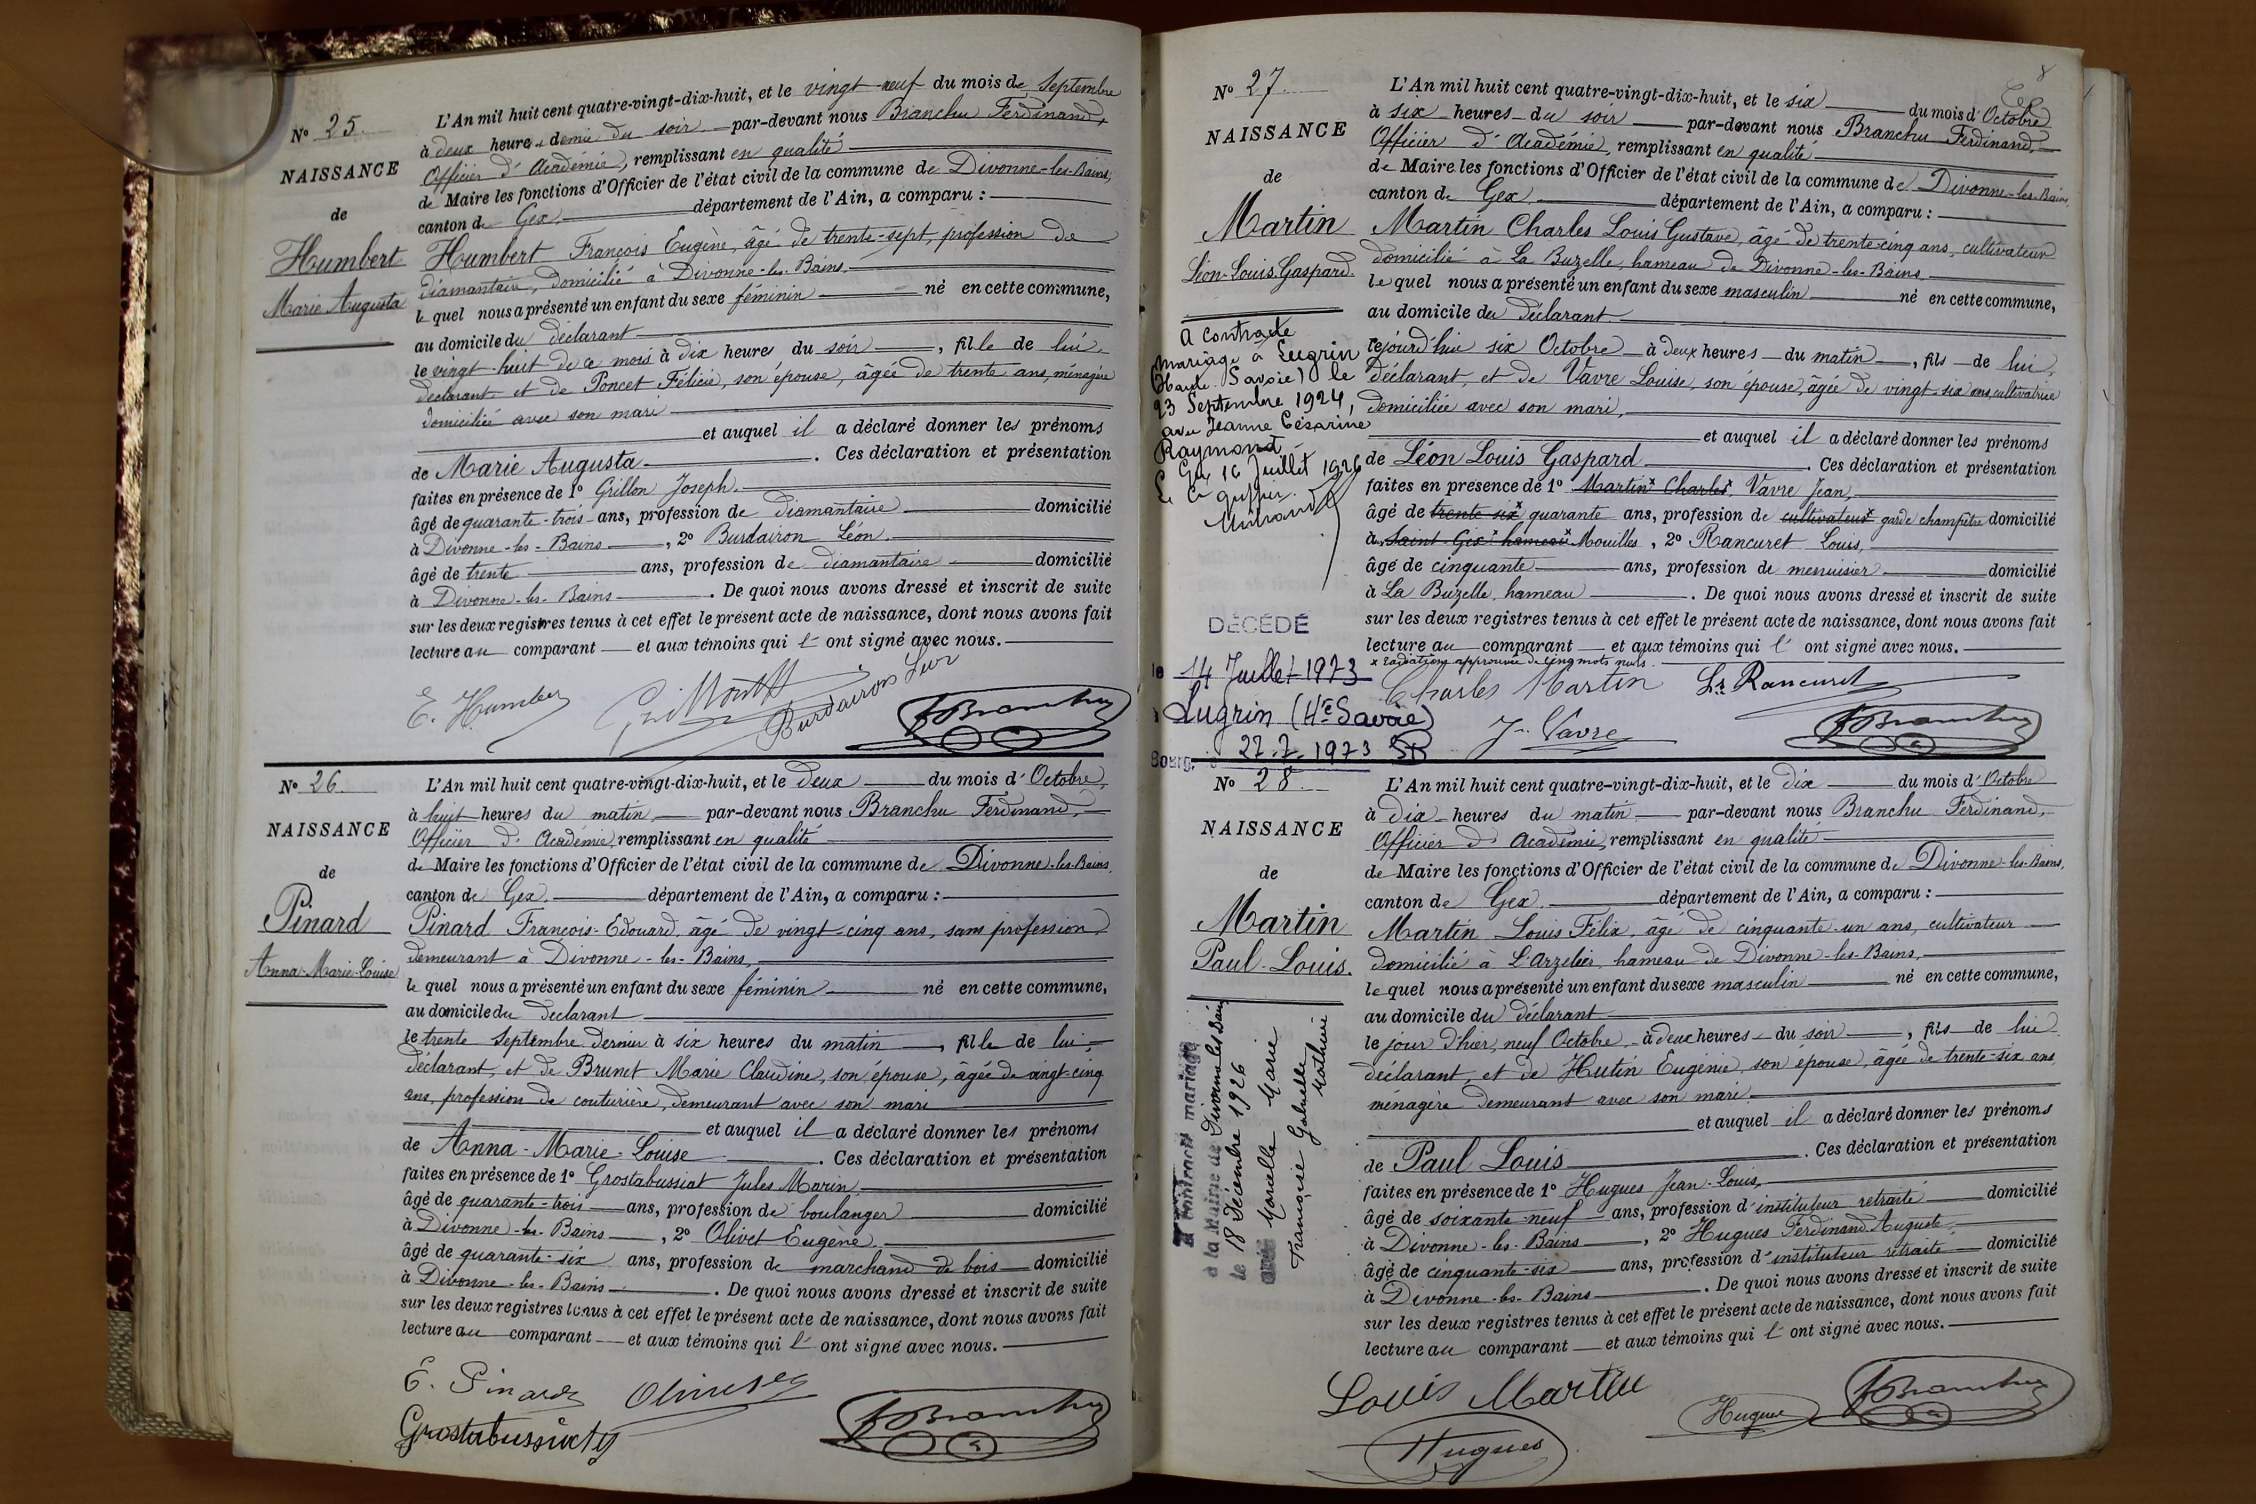 N° 25.
NAISSANCE
de
Humbert
Marie Augusta
L'An mil huit cent quatre-vingt-dix-huit, et le vingt-neuf du mois de Septembre
à deux heures demie du soir par-devant nous Branchu Ferdinand,
Officier d'Académie, remplissant en qualité
de Maire les fonctions d'Officier de l'état civil de la commune de Divonne-les-Bains,
canton de Gex département de l'Ain, a comparu :
Humbert François Eugène, âgé de trente-sept, profession de
diamantaire, domicilié à Divonne-les-Bains.
lequel nous a présenté un enfant du sexe féminin né en cette commune,
au domicile du déclarant
le vingt-huit de ce mois à dix heures du soir, fille de lui,
déclarant et de Poncet Félicie, son épouse, âgée de trente ans, ménagère
domiciliée avec son mari
et auquel il a déclaré donner les prénoms
de Marie Augusta. Ces déclaration et présentation
faites en présence de 1° Grillon Joseph.
âgé de quarante-trois ans, profession de diamantaire domicilié
à Divonne-les-Bains, 2° Burdairon Léon.
âgé de trente ans, profession de diamantaire domicilié
à Divonne-les-Bains. De quoi nous avons dressé et inscrit de suite
sur les deux registres tenus à cet effet le présent acte de naissance, dont nous avons fait
lecture au comparant et aux témoins qui l' ont signé avec nous.
E. Humbert
Burdairon Léon
FBranchu
N° 26.
NAISSANCE
de
Pinard
Anna-Marie-Louise
L'An mil huit cent quatre-vingt-dix-huit, et le deux du mois d'Octobre,
à huit heures du matin, par-devant nous Branchu Ferdinand,
Officier d'Académie, remplissant en qualité
de Maire les fonctions d'Officier de l'état civil de la commune de Divonne-les-Bains,
canton de Gex. département de l'Ain, a comparu :
Pinard François-Edouard, âgé de vingt-cinq ans, sans profession
demeurant à Divonne-les-Bains,
lequel nous a présenté un enfant du sexe féminin né en cette commune,
au domicile du déclarant
le trente Septembre dernier à six heures du matin, fille de lui,
déclarant, et de Brunet Marie Claudine, son épouse, âgée de vingt-cinq
ans, profession de couturière, demeurant avec son mari
et auquel il a déclaré donner les prénoms
de Anna-Marie-Louise. Ces déclaration et présentation
faites en présence de 1° Grostabussiat Jules Marin,
âgé de quarante-trois ans, profession de boulanger domicilié
à Divonne-les-Bains, 2° Olivet Eugène.
âgé de quarante-six ans, profession de marchand de bois domicilié
à Divonne-les-Bains. De quoi nous avons dressé et inscrit de suite
sur les deux registres tenus à cet effet le présent acte de naissance, dont nous avons fait
lecture au comparant et aux témoins qui l' ont signé avec nous.
E. Pinard
Grostabussiat
FBranchu
8
N° 27
NAISSANCE
de
Martin
Léon-Louis-Gaspard.
A contracté
mariage à Lugrin
(Haute Savoie) le
23 Septembre 1924,
avec Jeanne Césarine
Raymond
Gex 16 Juillet 1926
Le Cis greffier.
DÉCÉDÉ
le 14 Juillet 1973
à Lugrin (Hte Savoie)
Bourg, 27.7.1973
L'An mil huit cent quatre-vingt-dix-huit, et le six du mois d'Octobre
à six heures du soir par-devant nous Branchu Ferdinand,
Officier d'Académie, remplissant en qualité
de Maire les fonctions d'Officier de l'état civil de la commune de Divonne-les-Bains,
canton de Gex. département de l'Ain, a comparu :
Martin Charles Louis Gustave, âgé de trente-cinq ans, cultivateur
domicilié à La Buzelle, hameau de Divonne-les-Bains
lequel nous a présenté un enfant du sexe masculin né en cette commune,
au domicile du déclarant.
cejourd'hui six Octobre à deux heures du matin, fils de lui,
déclarant, et de Vavre Louise, son épouse, âgée de vingt-six ans, cultivatrice
domiciliée avec son mari,
et auquel il a déclaré donner les prénoms
de Léon Louis Gaspard. Ces déclaration et présentation
faites en présence de 1° Martin Charles Vavre Jean,
âgé de trente-six quarante ans, profession de cultivateur garde champêtre domicilié
à Saint-Gix hameau Mouilles, 2° Rancuret Louis,
âgé de cinquante ans, profession de menuisier domicilié
à La Buzelle, hameau. De quoi nous avons dressé et inscrit de suite
sur les deux registres tenus à cet effet le présent acte de naissance, dont nous avons fait
lecture au comparant et aux témoins qui l' ont signé avec nous.
x radiations approuvée de cinq mots nuls.
Charles Martin Ls Rancuret
Jn Vavre FBranchu
N° 28.
NAISSANCE
de
Martin
Paul-Louis.
A contracté mariage
à la Mairie de Divonne les Bains
le 18 Décembre 1926
avec Marcelle Marie
Françoise Gabrielle
L'An mil huit cent quatre-vingt-dix-huit, et le dix du mois d'Octobre
à dix heures du matin par-devant nous Branchu Ferdinand,
Officier d'Académie, remplissant en qualité
de Maire les fonctions d'Officier de l'état civil de la commune de Divonne-les-Bains,
canton de Gex. département de l'Ain, a comparu :
Martin Louis Félix, âgé de cinquante-un ans, cultivateur
domicilié à L'Arzelier, hameau de Divonne-les-Bains,
lequel nous a présenté un enfant du sexe masculin né en cette commune,
au domicile du déclarant
le jour d'hier, neuf Octobre à deux heures du soir, fils de lui
déclarant, et de Hutin Eugénie, son épouse, âgée de trente-six ans
ménagère demeurant avec son mari.
et auquel il a déclaré donner les prénoms
de Paul Louis. Ces déclaration et présentation
faites en présence de 1° Hugues Jean-Louis,
âgé de soixante-neuf ans, profession d'instituteur retraité domicilié
à Divonne-les-Bains, 2° Hugues Ferdinand Auguste,
âgé de cinquante-six ans, profession d'instituteur retraité domicilié
à Divonne-les-Bains. De quoi nous avons dressé et inscrit de suite
sur les deux registres tenus à cet effet le présent acte de naissance, dont nous avons fait
lecture au comparant et aux témoins qui l' ont signé avec nous.
Louis Martin
Hugues FBranchu
Hugues